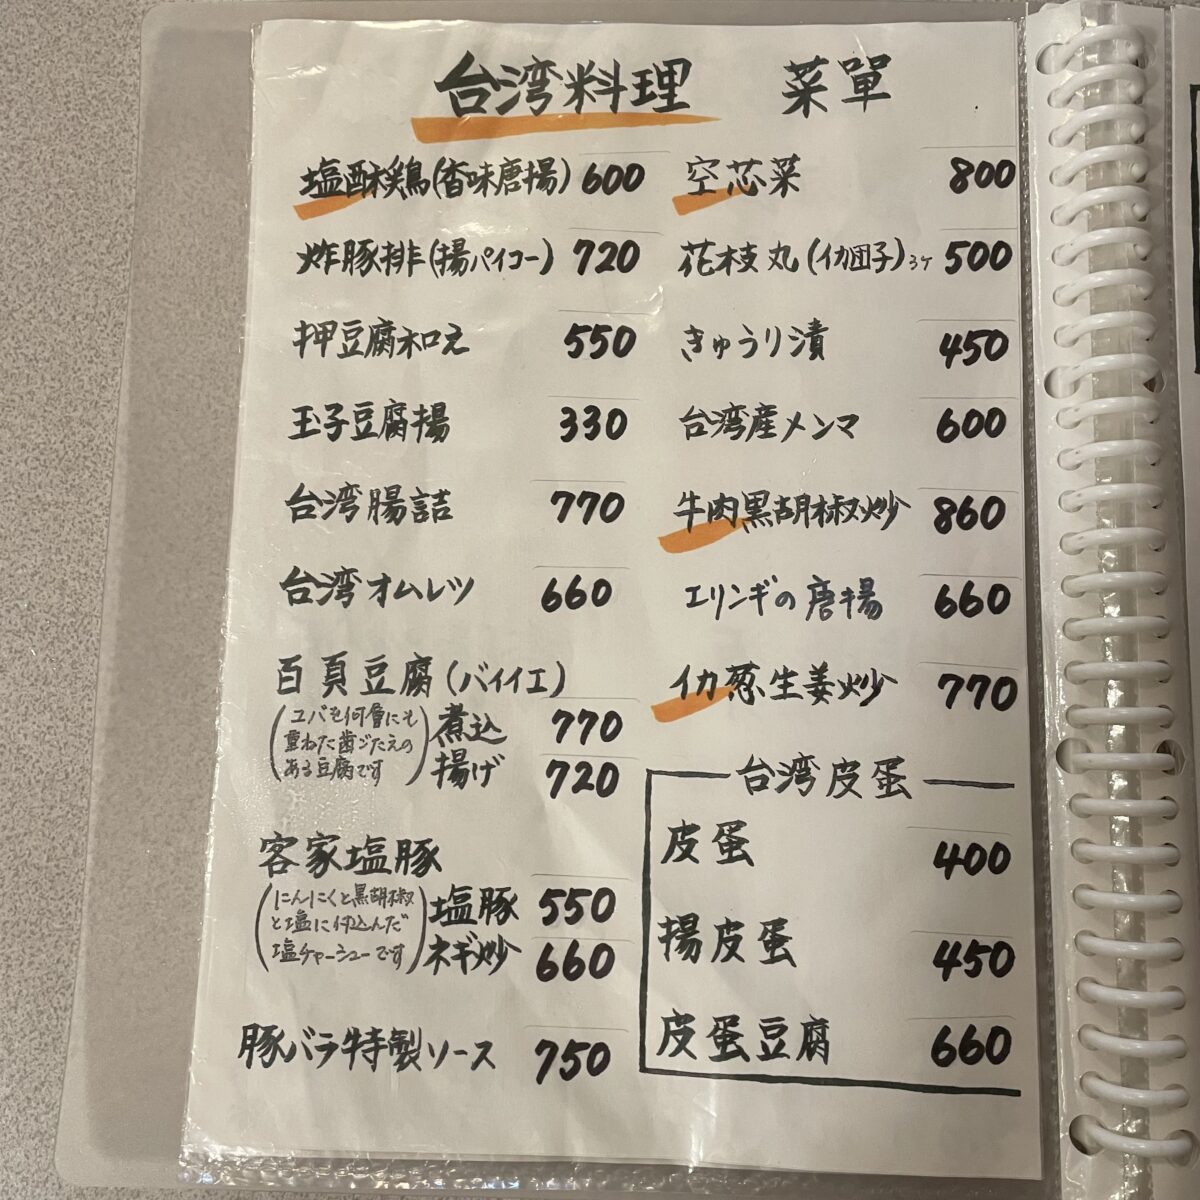 台湾料理 菜單
塩酥鶏(香味唐揚) 600
炸豚排(揚パイコー) 720
押豆腐和え 550
玉子豆腐揚 330
台湾腸詰 770
台湾オムレツ 660
百頁豆腐(バイイエ)
(ユバを何層にも
重ねた歯ごたえの
ある豆腐です)
煮込 770
揚げ 720
客家塩豚
(にんにくと黒胡椒
と塩に仕込んだ
塩チャーシューです)
塩豚 550
ネギ炒 660
豚バラ特製ソース 750
空芯菜 800
花枝丸(イカ団子)3ケ 500
きゅうり漬 450
台湾産メンマ 600
牛肉黒胡椒炒 860
エリンギの唐揚 660
イカ葱生姜炒 770
台湾皮蛋
皮蛋 400
揚皮蛋 450
皮蛋豆腐 660